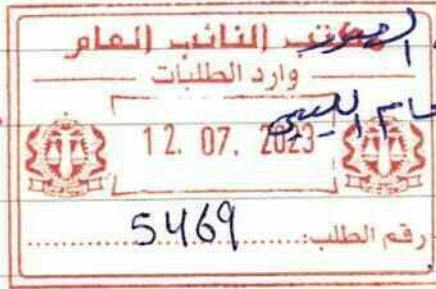 مكتب النائب العام
وارد الطلبات
12. 07. 2023
رقم الطلب: 5469